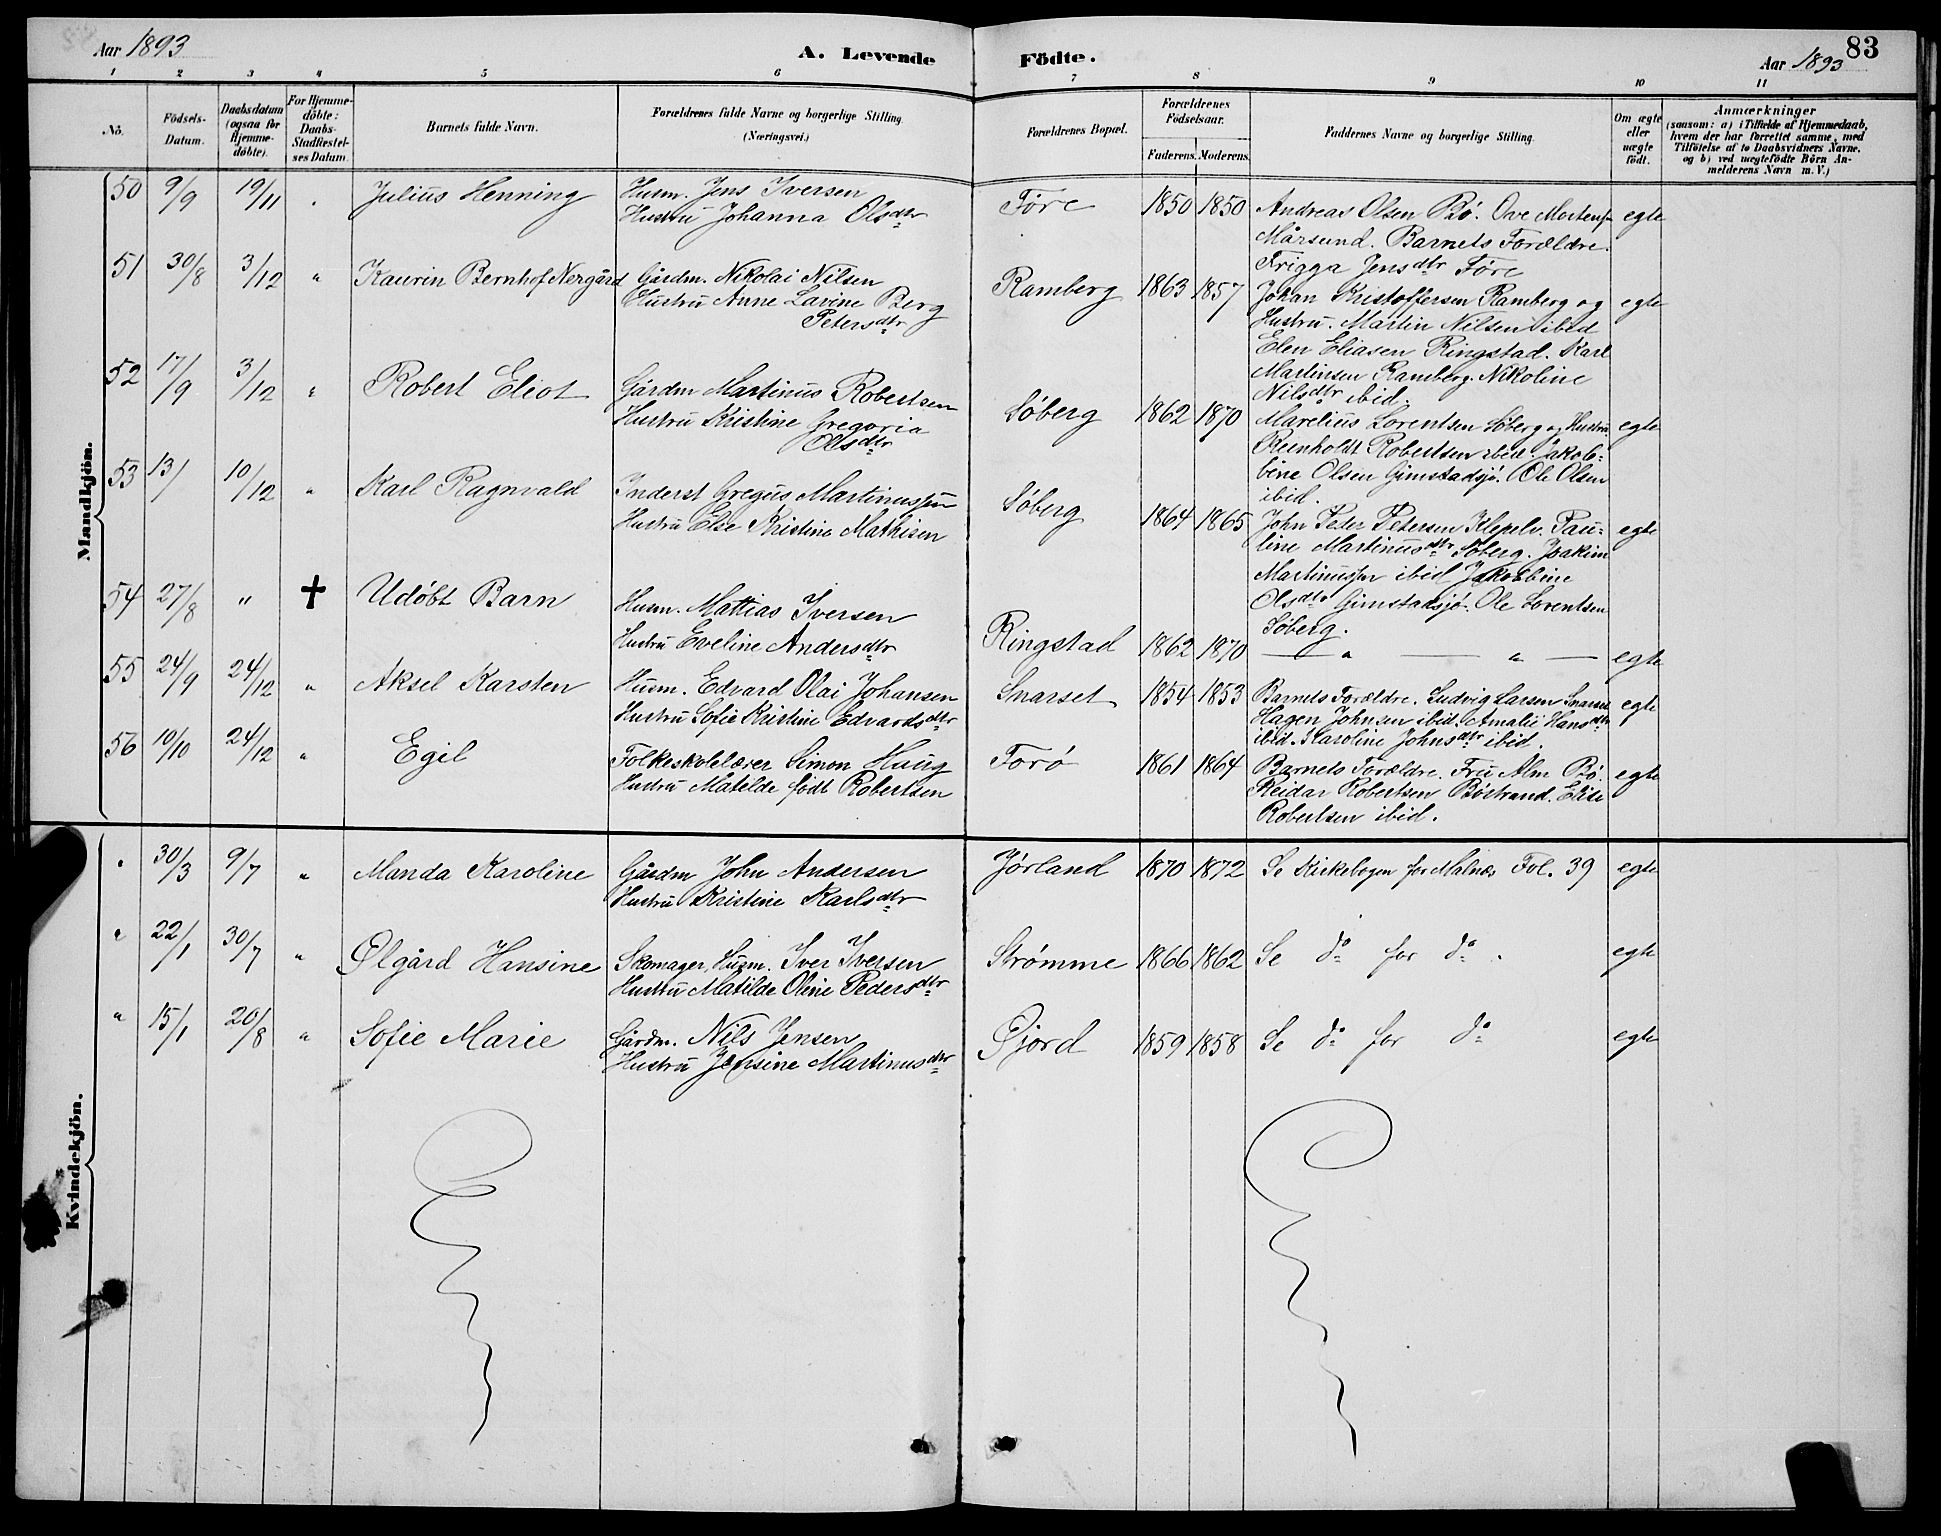 Aar 1893
A. Levende
Födte.
Aar 1893
83
1 2 3 4 5 6 7 8 9 10 11
No.
Födsels-
Datum.
Daabsdatum
(ogsaa for
Hjemme-
döbte).
For Hjemme-
döbte:
Daabs-
Stadfæstel-
ses Datum.
Barnets fulde Navn.
Forældrenes fulde Navne og borgerlige Stilling
(Næringsvei.)
Forældrenes Bopæl.
Forældrenes
Födselsaar.
Faderens. Moderens.
Faddernes Navne og borgerlige Stilling.
Om ægte
eller
uægte
födt.
Anmærkninger
(saasom: a) i Tilfælde af Hjemmedaab,
hvem der har forrettet samme, med
Tilföielse af to Daabsvidners Navne,
og b) ved uægtefödte Börn An-
melderens Navn m. V.)
Mandkjön.
50 9/9 19/11 Julius Henning
Husm. Jens Iversen
Hustru Johanna Olsdtr
Føre 1850 1850
Andreas Olsen Bø. Ove Mortens.
Mårsund. Barnets Forældre.
Frigga Jensdtr Føre
egte
51 30/8 3/12 " Kaurin Bernhof Nergård
Gårdm. Nikolai Nilsen
Hustru Anne Lavine Berg
Petersdtr
Ramberg 1863 1857
Johan Kristoffersen Ramberg og
Hustru. Martin Nilsen ibid
Elen Eliasen Ringstad. Karl
Martinsen Ramberg. Nikoline
Nilsdtr ibid.
egte
52 17/9 3/12 " Robert Eliot
Gårdm Martinus Robertsen
Hustru Kristine Gregoria
Olsdtr
Søberg 1862 1870
Marelius Lorentsen Søberg og Hustru
Reinholdt Robertsen ibid. Jakob-
bine Olsen Gimstadsjø. Ole Olsen
ibid.
egte
53 13/ 10/12 " Karl Ragnvald
Inderst Gregus Martinussen
Hustru Else Kristine Mathisen
Søberg 1864 1865
John Peder Petersen Klepelv. Pau-
line Martinusdtr Søberg. Joakim
Martinussen ibid Jakobbine
Olsdtr Gimstadsjø. Ole Lorentsen
Søberg.
egte
54 27/8 " † Udøbt Barn
Husm. Mattias Iversen
Hustru Eveline Andersdtr
Ringstad 1862 1870
— " — " —
egte
55 24/9 24/12 " Aksel Karsten
Husm. Edvard Olai Johansen
Hustru Sofie Kristine Edvardsdtr
Snarset 1854 1853
Barnets Forældre. Ludvig Larsen Snarset
Hagen Johnsen ibid. Amalie Hansdtr
ibid. Karoline Johnsdtr ibid.
egte
56 10/10 24/12 " Egil
Folkeskolelærer Simon Haug
Hustru Matelde født Robertsen
Forø 1861 1864
Barnets Forældre. Fru Alm Bø.
Reidar Robertsen Bøstrand. Elise
Robertsen ibid.
egte
Kvindekjön.
" 30/3 9/7 " Manda Karoline
Gårdm John Andersen
Hustru Kristine Karlsdtr
Jørland 1870 1872
Se Kirkebogen for Malnæs Fol. 39
egte
" 22/1 30/7 " Ølgård Hansine
Skomager, Husm. Iver Iversen
Hustru Matilde Oline Pedersdtr
Strømme 1866 1862
Se do for do.
egte
" 15/1 20/8 " Sofie Marie
Gårdm. Nils Jensen
Hustru Jensine Martinusdtr
Øjord 1859 1858
Se do for do
egte